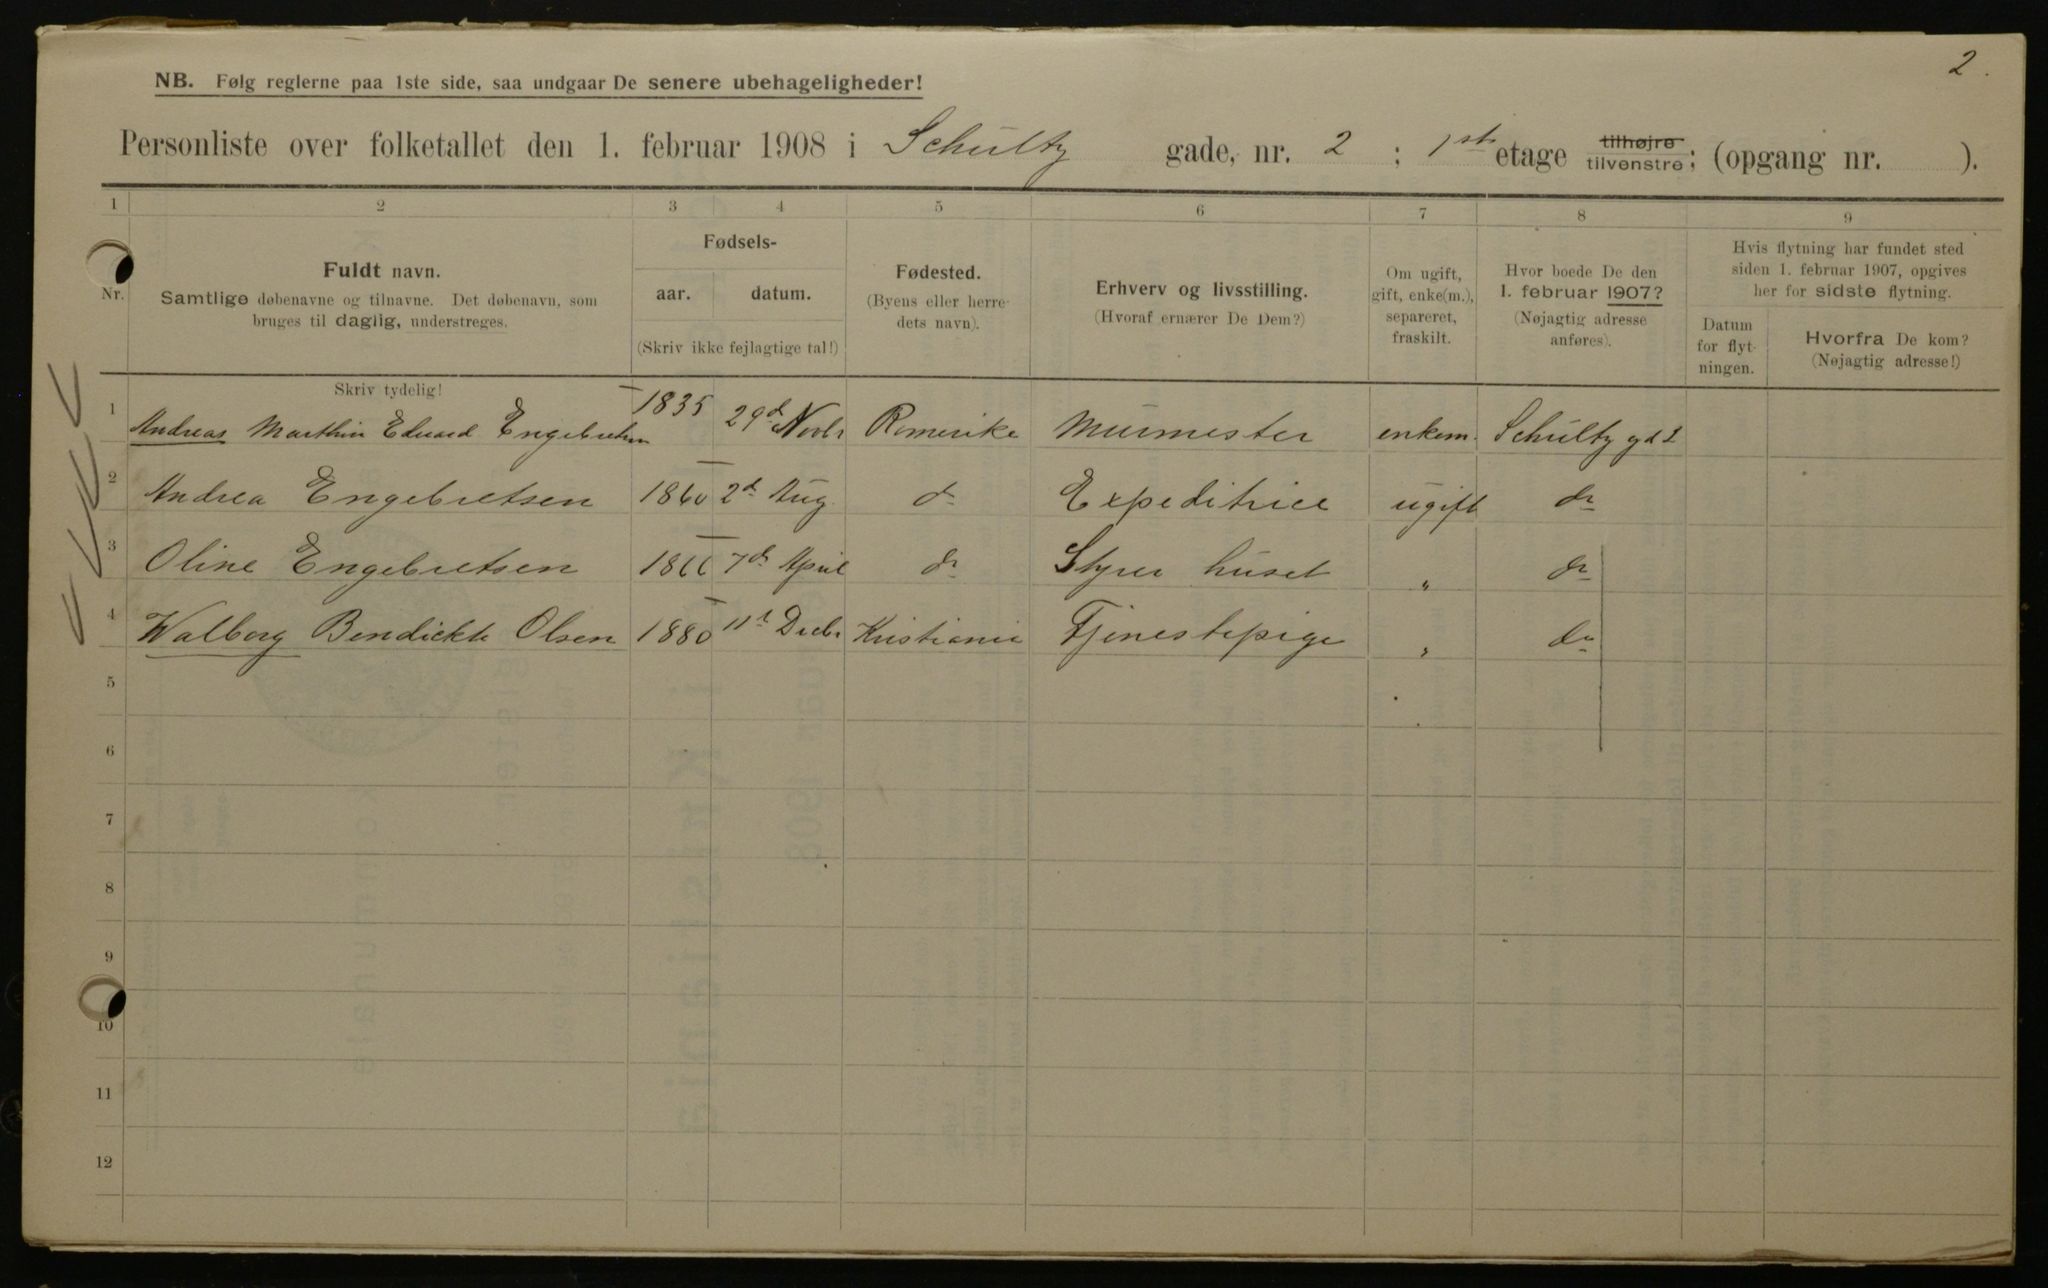 2.
NB. Følg reglerne paa 1ste side, saa undgaar De senere ubehageligheder!
Personliste over folketallet den 1. februar 1908 i Schultz gade, nr. 2 ; 1ste etage tilhøjre tilvenstre; (opgang nr. ).
1 2 3 4 5 6 7 8 9
Nr.
Fuldt navn.
Samtlige døbenavne og tilnavne. Det døbenavn, som
bruges til daglig, understreges.
Fødsels-
aar. datum.
(Skriv ikke fejlagtige tal!)
Fødested.
(Byens eller herre-
dets navn).
Erhverv og livsstilling.
(Hvoraf ernærer De Dem?)
Om ugift,
gift, enke(m.),
separeret,
fraskilt.
Hvor boede De den
1. februar 1907?
(Nøjagtig adresse
anføres).
Hvis flytning har fundet sted
siden 1. februar 1907, opgives
her for sidste flytning.
Datum
for flyt-
ningen.
Hvorfra De kom?
(Nøjagtig adresse!)
Skriv tydelig!
1 Andreas Marthin Eduard Engebretsen 1835 29d Novbr Romerike Murmester enkem. Schultz gd 2
2 Andrea Engebretsen 1860 2d Aug. do Expeditrice ugift do
3 Oline Engebretsen 1866 7d April do Styrer huset " do
4 Walborg Bendickte Olsen 1880 11d Decbr Kristiania Tjenestepige " do
5
6
7
8
9
10
11
12